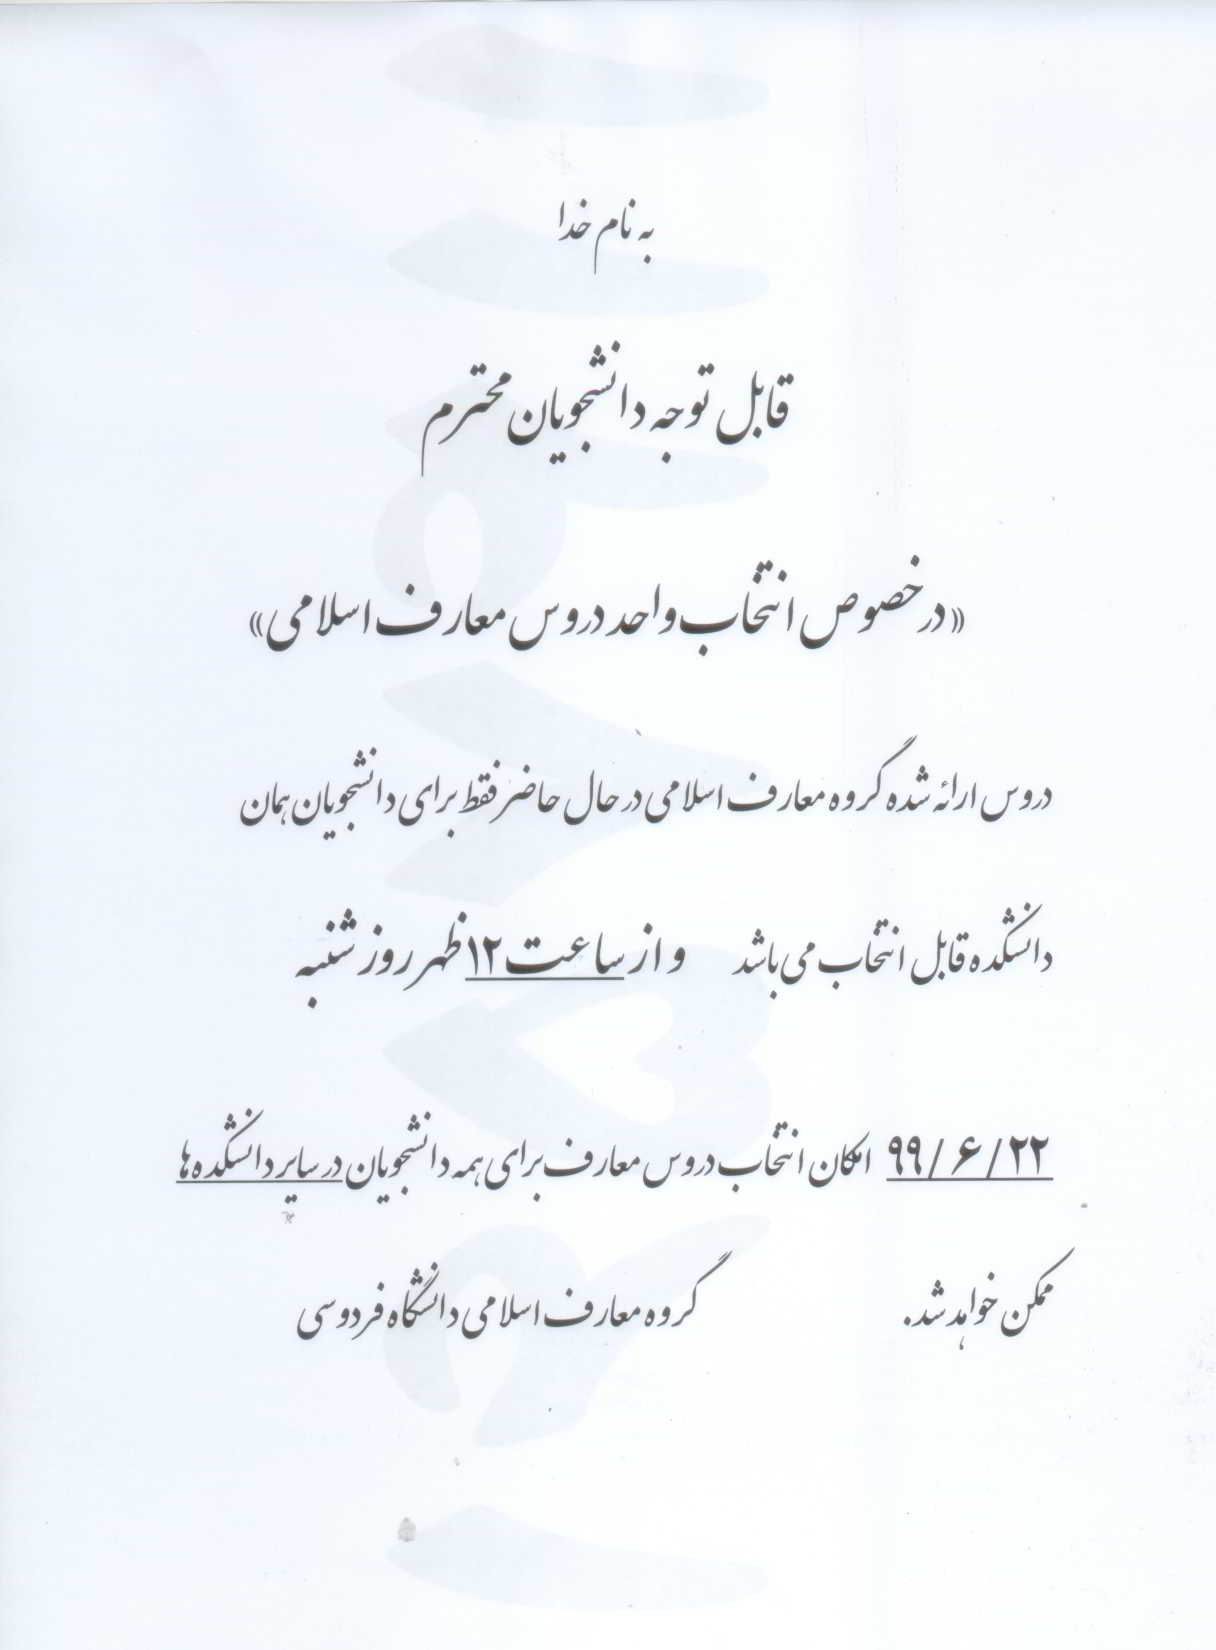 به نام خدا
قابل توجه دانشجویان محترم
«در خصوص انتخاب واحد دروس معارف اسلامی»
دروس ارائه شده گروه معارف اسلامی در حال حاضر فقط برای دانشجویان همان
دانشکده قابل انتخاب می باشد و از ساعت ۱۲ ظهر روز شنبه
۹۹/۶/۲۲ امکان انتخاب دروس معارف برای همه دانشجویان در سایر دانشکده ها
ممکن خواهد شد. گروه معارف اسلامی دانشگاه فردوسی